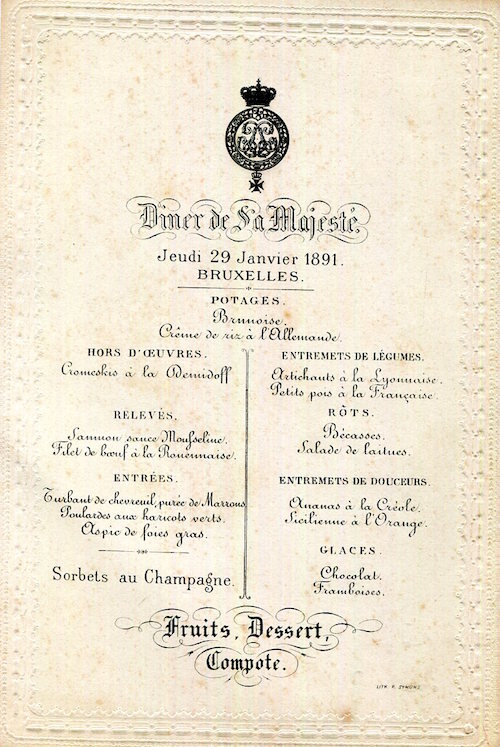 Diner de Sa Majesté.
Jeudi 29 Janvier 1891.
BRUXELLES.
POTAGES.
Brunoise.
Crême de riz à l'Allemande.
HORS D'ŒUVRES.
Cromeskis à la Demidoff
RELEVÉS.
Saumon sauce Mousseline.
Filet de bœuf à la Rouennaise.
ENTRÉES.
Turbant de chevreuil, purée de Marrons
Poulardes aux haricots verts.
Aspic de foies gras.
Sorbets au Champagne.
ENTREMETS DE LÉGUMES.
Artichauts à la Lyonnaise.
Petits pois à la Française
RÔTS.
Bécasses.
Salade de laitues.
ENTREMETS DE DOUCEURS.
Ananas à la Créole.
Sicilienne à l'Orange.
GLACES.
Chocolat.
Framboises.
Fruits, Dessert,
Compote.
LITH. P. SYMONS.